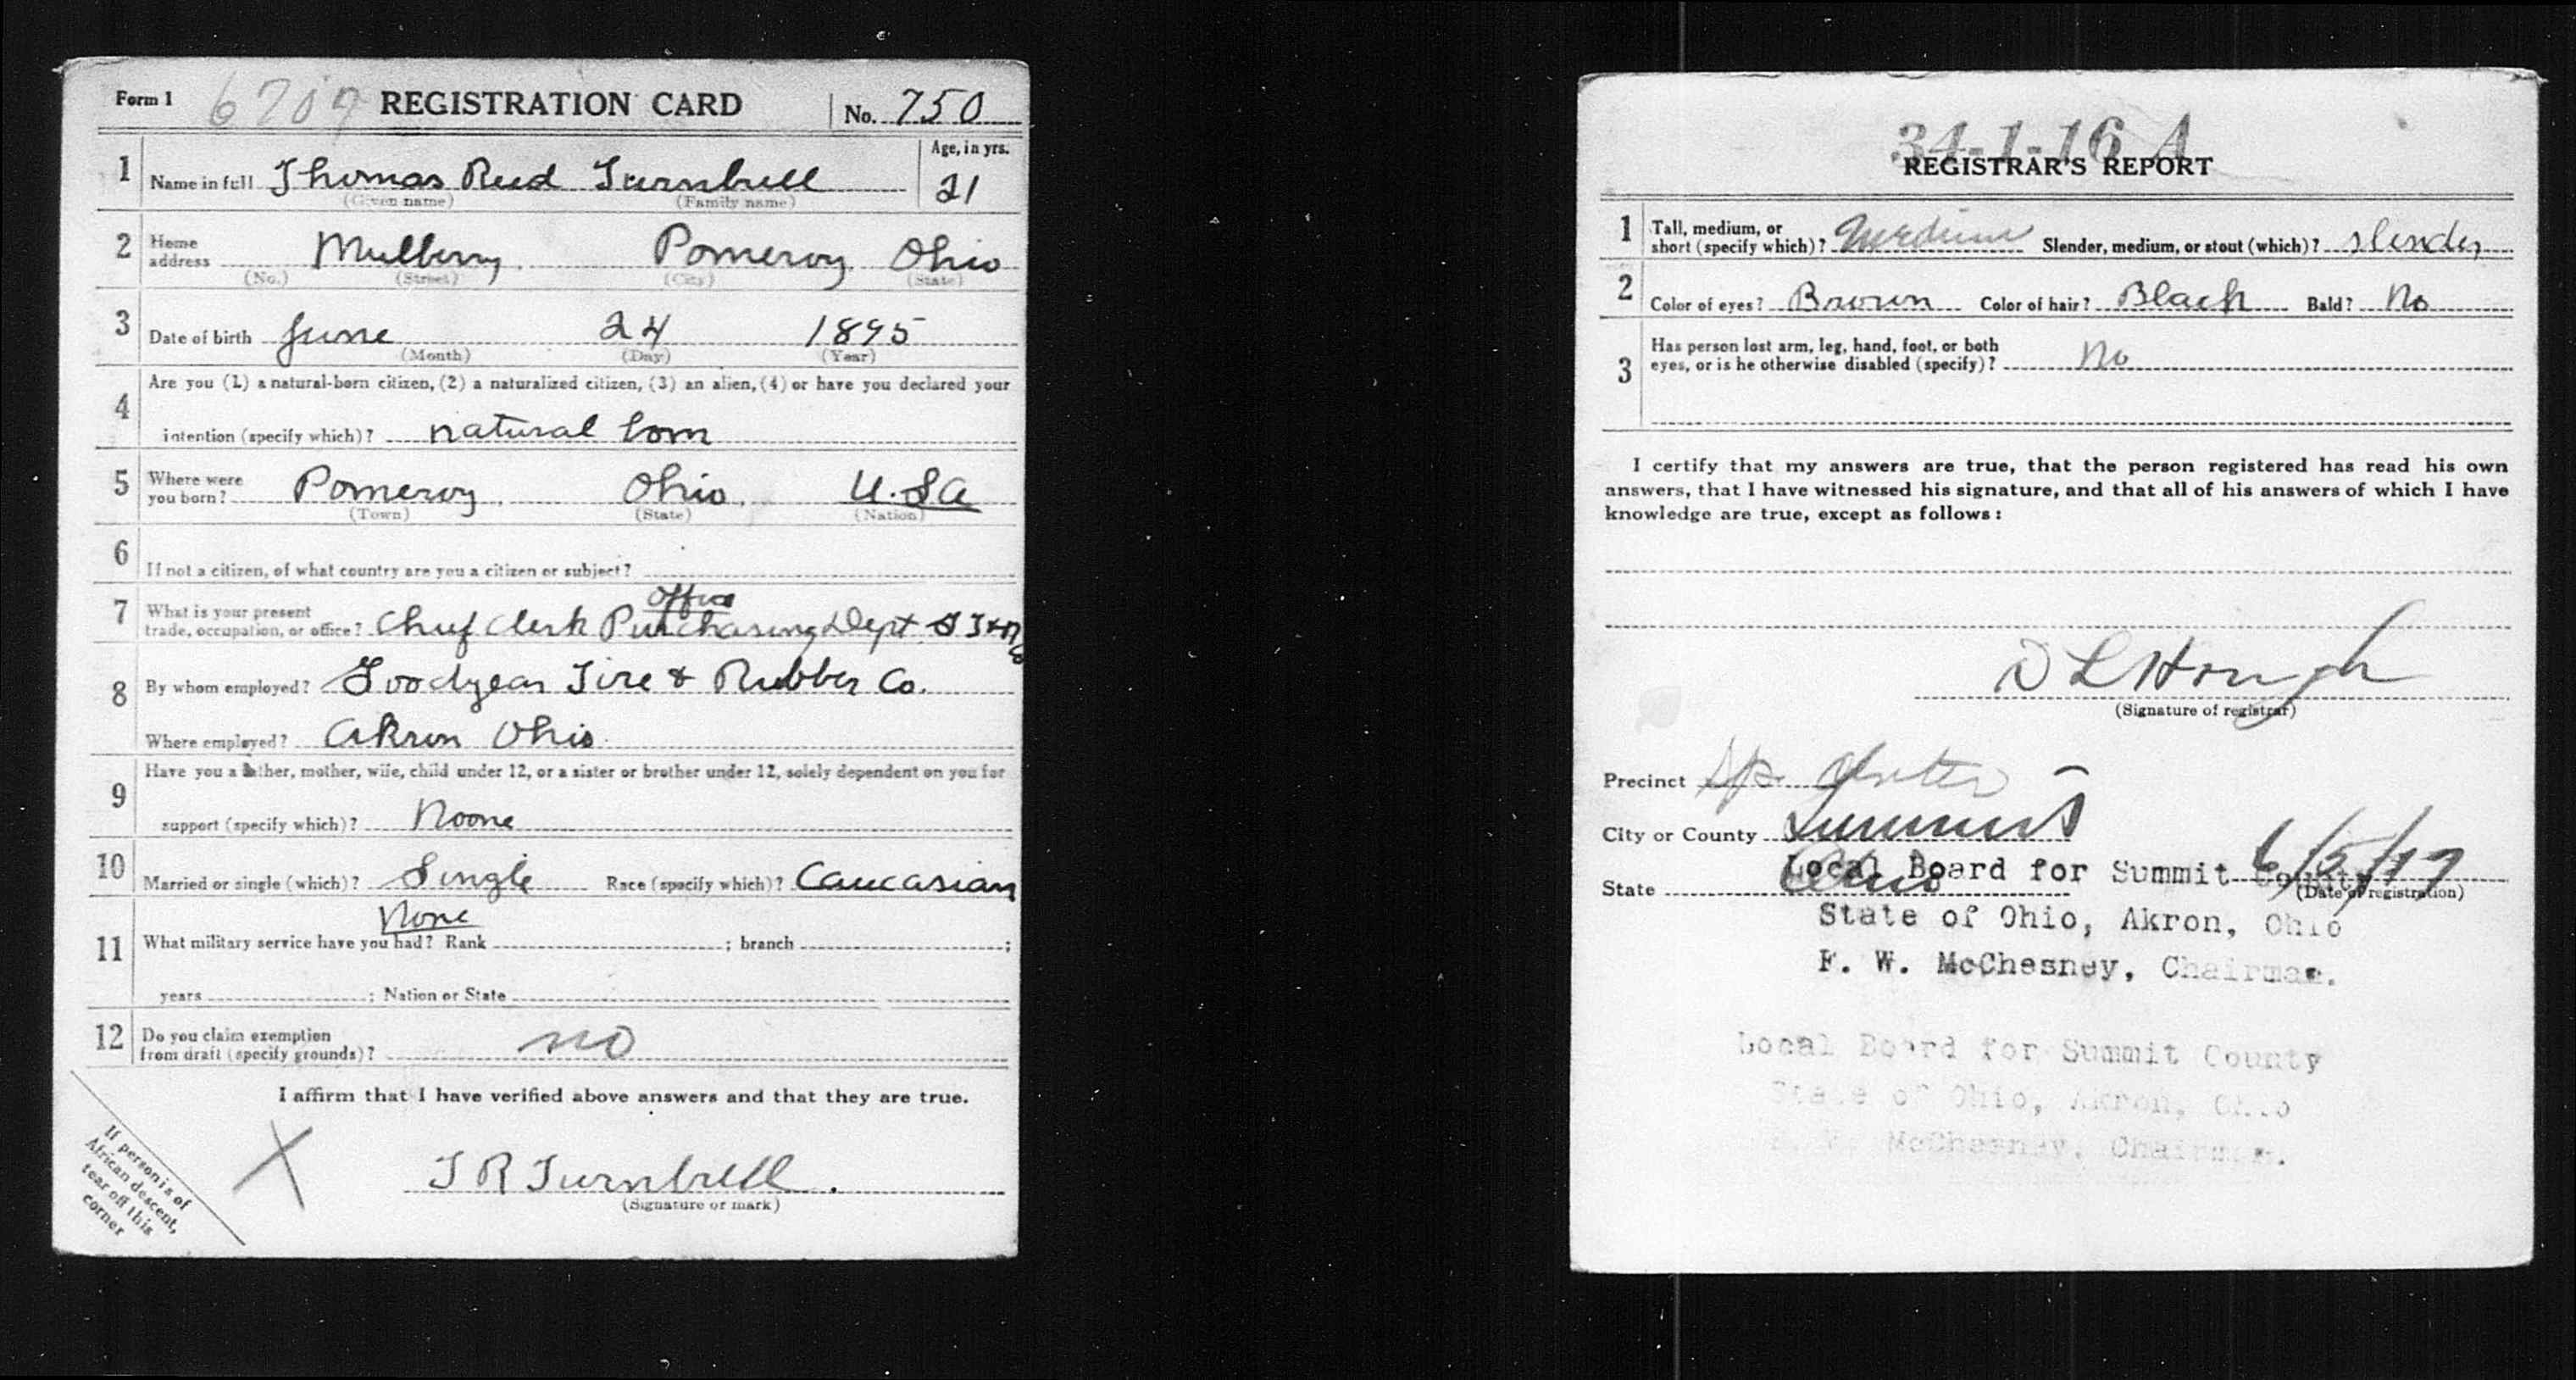 Form 1 6707 REGISTRATION CARD No. 750
1 Name in full Thomas Reed Turnbull Age, in yrs. 21
(Given name) (Family name)
2 Home address Mulberry Pomeroy Ohio
(No.) (Street) (City) (State)
3 Date of birth June 24 1895
(Month) (Day) (Year)
4 Are you (1) a natural-born citizen, (2) a naturalized citizen, (3) an alien, (4) or have you declared your
intention (specify which)? natural born
5 Where were you born? Pomeroy Ohio. U.S.A
(Town) (State) (Nation)
6 If not a citizen, of what country are you a citizen or subject?
office
7 What is your present trade, occupation, or office? Chief Clerk Purchasing Dept G T & R Co
8 By whom employed? Goodyear Tire & Rubber Co.
Where employed? Akron Ohio
9 Have you a father, mother, wife, child under 12, or a sister or brother under 12, solely dependent on you for
support (specify which)? Noone
10 Married or single (which)? Single Race (specify which)? Caucasian
None
11 What military service have you had? Rank ; branch ;
years ; Nation or State
12 Do you claim exemption from draft (specify grounds)? no
I affirm that I have verified above answers and that they are true.
X
T R Turnbull.
(Signature or mark)
If person is of
African descent,
tear off this
corner
34-1-16 A
REGISTRAR'S REPORT
1 Tall, medium, or short (specify which)? Medium Slender, medium, or stout (which)? slender
2 Color of eyes? Brown Color of hair? Black Bald? No
3 Has person lost arm, leg, hand, foot, or both eyes, or is he otherwise disabled (specify)? No
I certify that my answers are true, that the person registered has read his own
answers, that I have witnessed his signature, and that all of his answers of which I have
knowledge are true, except as follows:
D L Hough
(Signature of registrar)
Precinct
City or County Summit
State Ohio 6/5/17
(Date of registration)
Local Board for Summit County
State of Ohio, Akron, Ohio
F. W. McChesney, Chairman.
Local Board for Summit County
State of Ohio, Akron, Ohio
F. W. McChesney, Chairman.